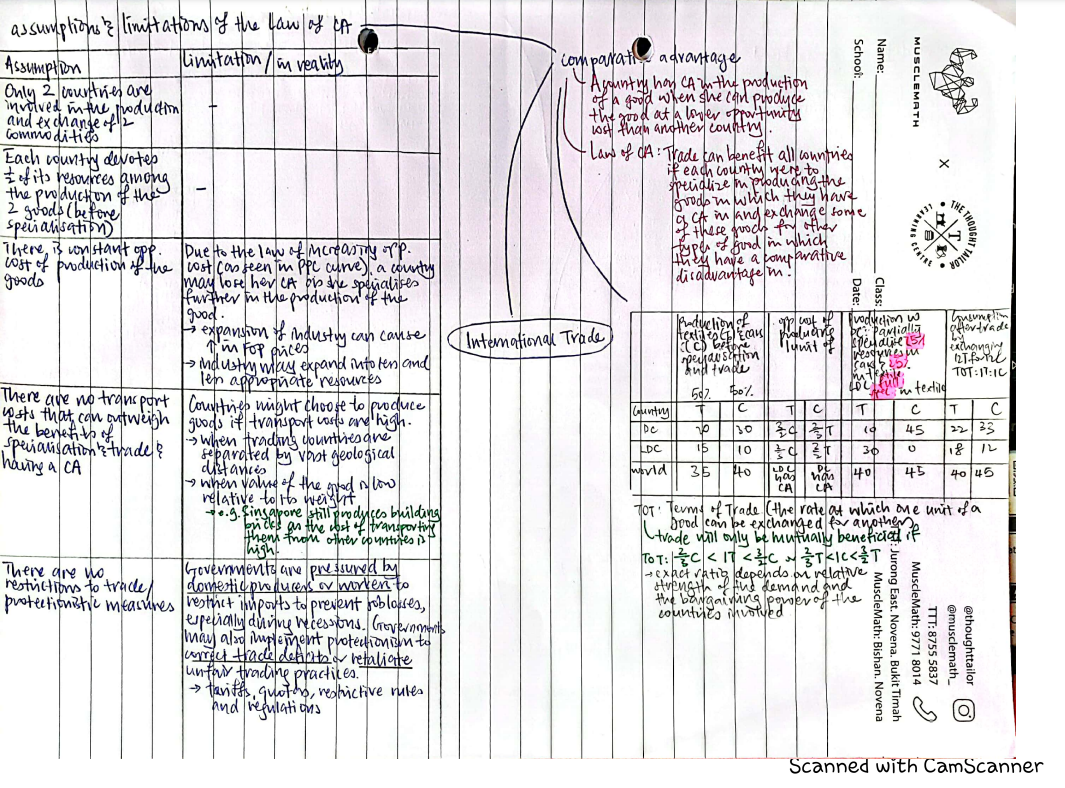 assumptions & limitations of the law of CA
Assumption
Limitation / in reality
Only 2 countries are
involved in the production
and exchange of 2
commodities
-
Each country devotes
½ of its resources among
the production of the
2 goods (before
specialisation)
-
There is constant opp.
cost of production of the
goods
Due to the law of increasing opp.
cost (as seen in PPC curve), a country
may lose her CA as she specialises
further in the production of the
good.
→ expansion of industry can cause
↑ in FOP prices
→ industry may expand into less and
less appropriate resources
There are no transport
costs that can outweigh
the benefits of
specialisation & trade &
having a CA
Countries might choose to produce
goods if transport costs are high.
→ when trading countries are
separated by vast geological
distances
→ when value of the good is low
relative to its weight
→ e.g. Singapore still produces building
bricks as the cost of transporting
them from other countries is
high.
There are no
restrictions to trade/
protectionistic measures
Governments are pressured by
domestic producers or workers to
restrict imports to prevent job losses,
especially during recessions. Governments
may also implement protectionism to
correct trade deficits or retaliate
unfair trading practices.
→ tariffs, quotas, restrictive rules
and regulations
International Trade
comparative advantage
A country has CA in the production
of a good when she can produce
the good at a lower opportunity
cost than another country.
Law of CA: Trade can benefit all countries
if each country were to
specialize in producing the
goods in which they have
a CA in and exchange some
of these goods for other
types of good in which
they have a comparative
disadvantage in.
Production of
textiles (T) & cars
(C) before
specialisation
and trade
50% 50%
opp cost of
producing
1 unit of
Production w
DC: partially
specialise
resources in
cars
in textile
LDC
in textile
Consumption
after trade
by
exchanging
12T for 12C
TOT: 1T:1C
Country T C T C T C T C
DC 20 30 3/2 C 2/3 T 10 45 22 33
LDC 15 10 2/3 C 3/2 T 30 0 18 12
World 35 40 LDC has CA DC has CA 40 45 40 45
TOT: Terms of Trade (the rate at which one unit of a
good can be exchanged for another)
trade will only be mutually beneficial if
TOT: 2/3 C < 1T < 3/2 C ~ 2/3 T < 1C < 3/2 T
→ exact ratio depends on relative
strength of the demand and
the bargaining power of the
countries involved
MUSCLEMATH
X
THE THOUGHT TAILOR
LEARNING CENTRE
Name:
School:
Class:
Date:
@thoughttailor
@musclemath_
TTT: 8755 5837
MuscleMath: 9771 8014
: Jurong East, Novena, Bukit Timah
MuscleMath: Bishan, Novena
Scanned with CamScanner